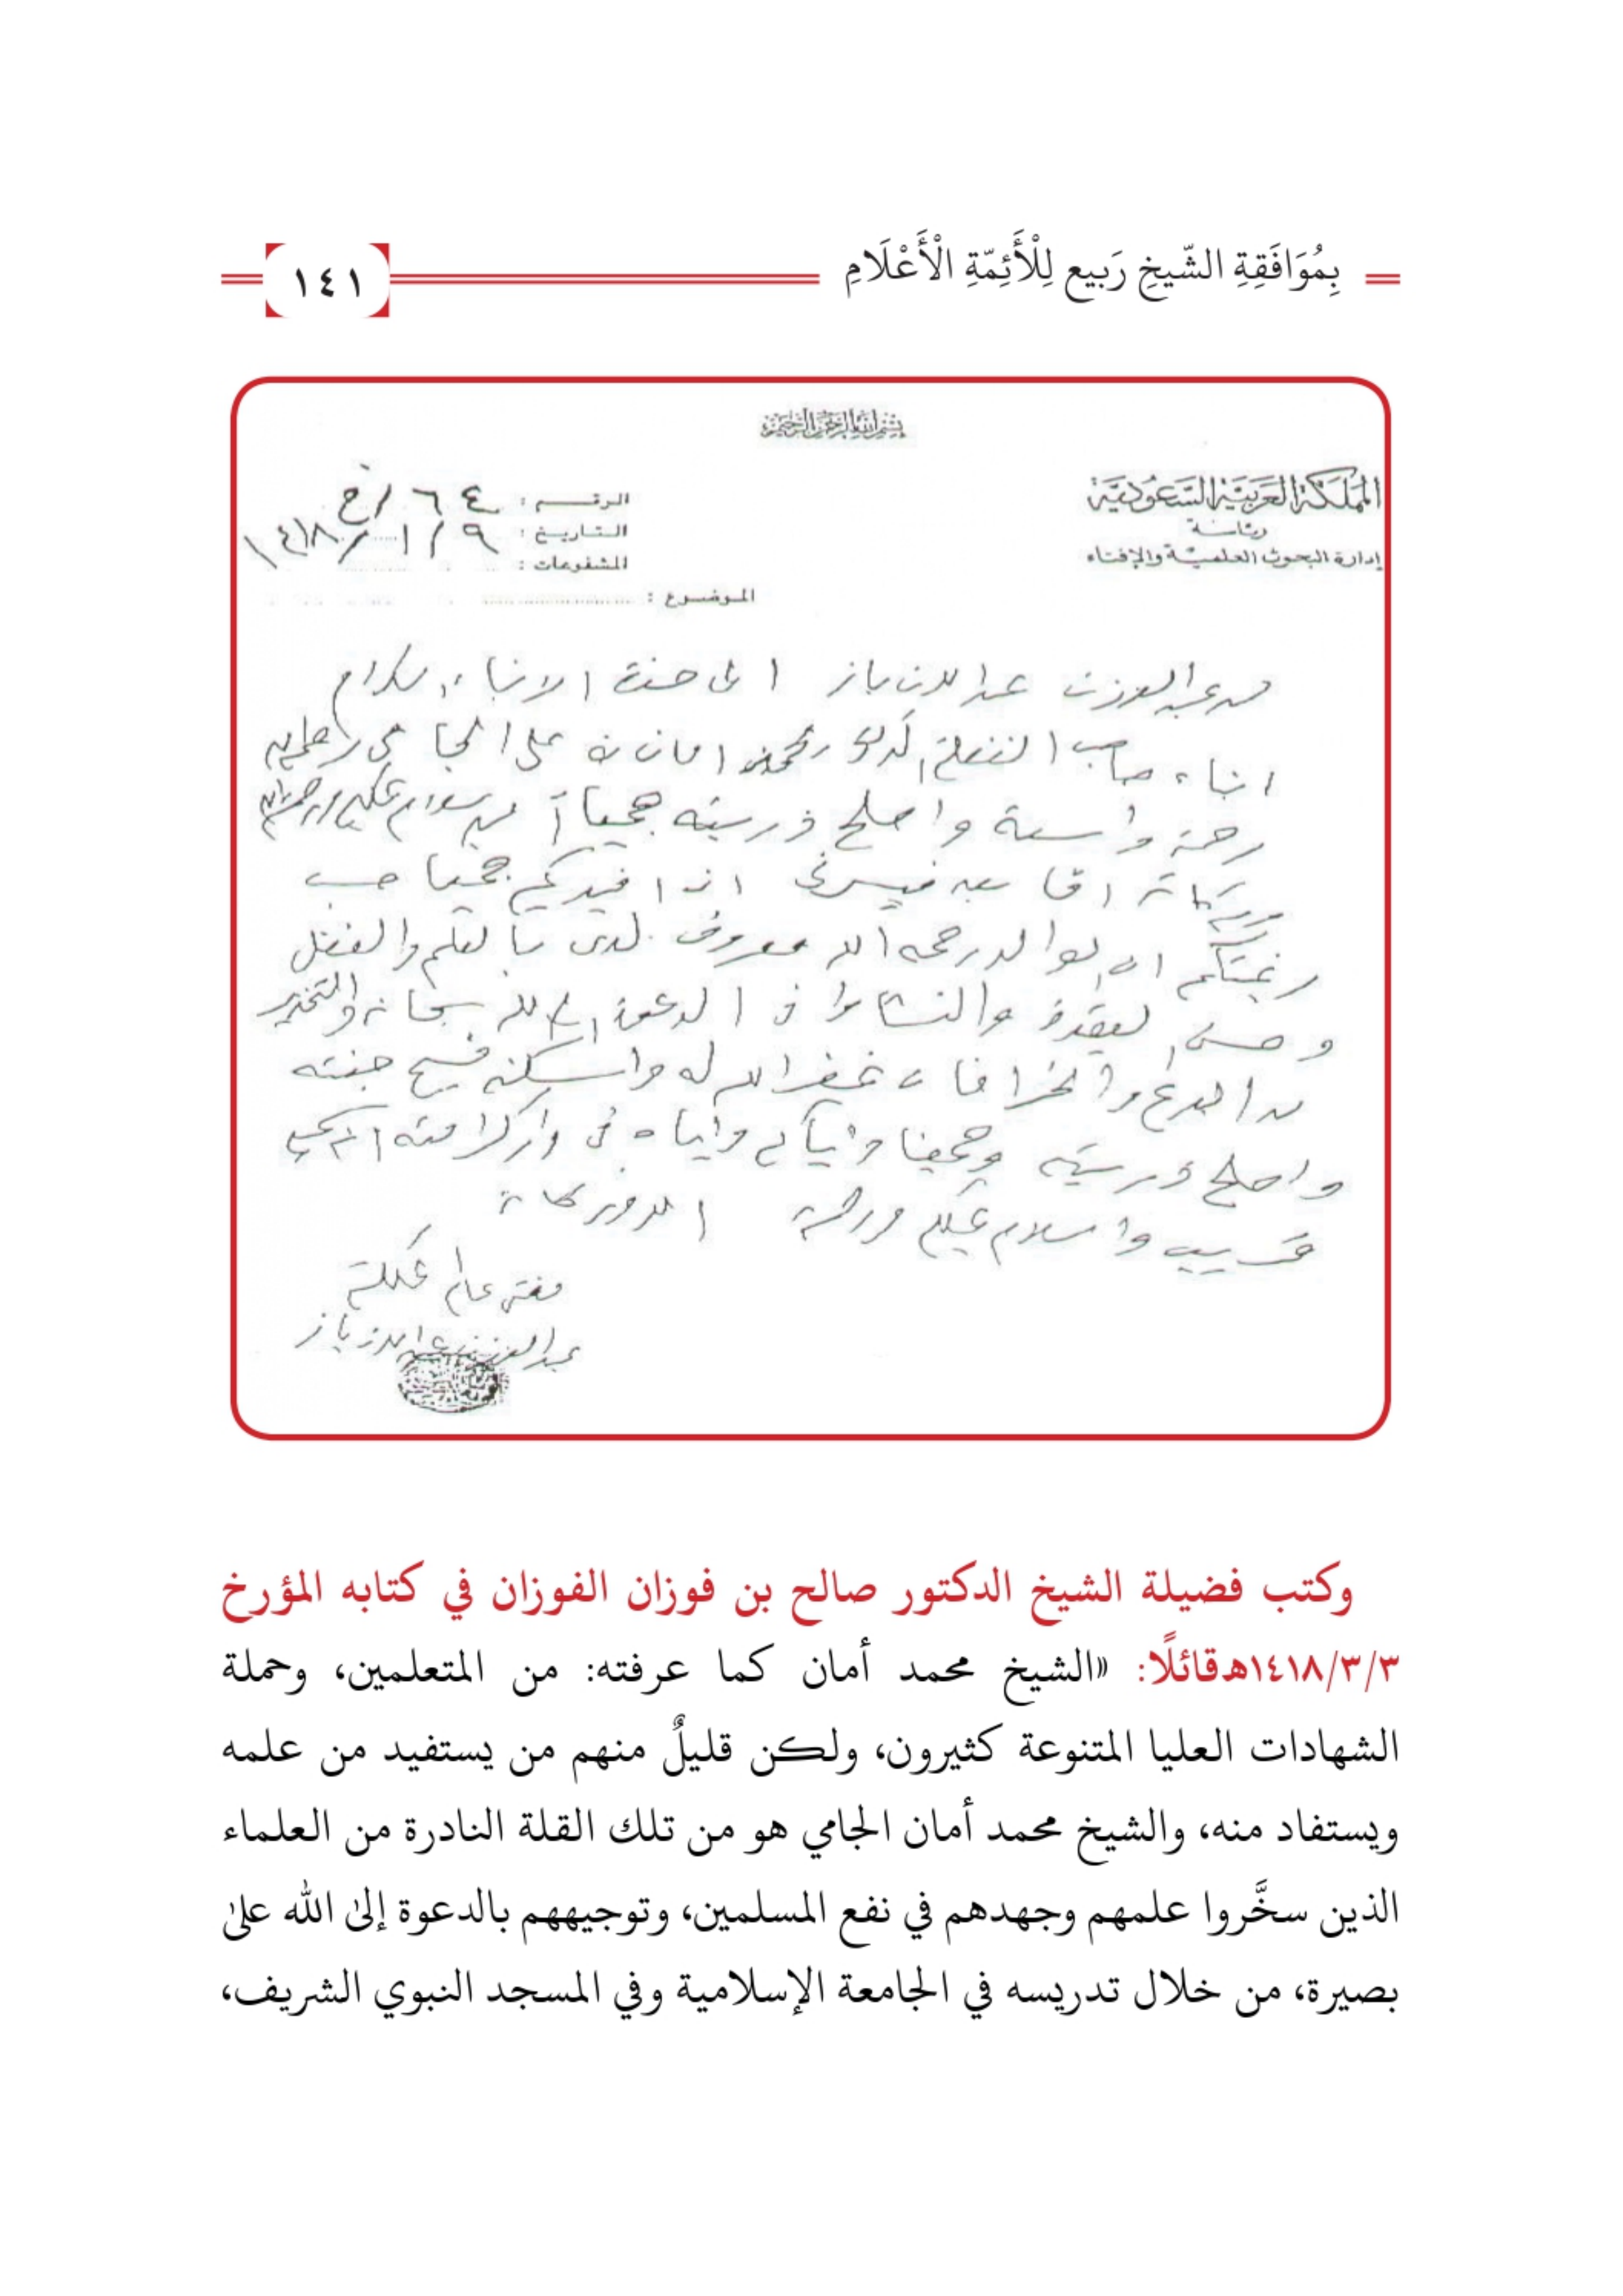 بِمُوَافَقِةِ الشّيخِ رَبيع لِلْأَئِمّةِ الْأَعْلَامِ
١٤١
بسم الله الرحمن الرحيم
المملكة العربية السعودية
رئاسة
إدارة البحوث العلمية والإفتاء
الرقم : ٦٤ / خ
التاريخ : ٩ / ١ / ١٤١٨
المشفوعات :
الموضوع :
من عبد العزيز بن عبد الله بن باز إلى حضرة الأبناء الكرام
أبناء صاحب الفضيلة الدكتور محمد أمان بن علي الجامي رحمه الله
رحمة واسعة وأصلح ذريته جميعا آمين سلام عليكم ورحمة الله
وبركاته أما بعد فيسرني أن أفيدكم جميعا حسب
رغبتكم أن الوالد رحمه الله معروف لدي بالعلم والفضل
وحسن العقيدة والنشاط في الدعوة إلى الله سبحانه والتحذير
من البدع والخرافات غفر الله له وأسكنه فسيح جنته
وأصلح ذريته وجمعنا وإياكم وإياه في دار كرامته إنه سميع
قريب والسلام عليكم ورحمة الله وبركاته
مفتي عام المملكة
عبد العزيز بن عبد الله بن باز
وكتب فضيلة الشيخ الدكتور صالح بن فوزان الفوزان في كتابه المؤرخ
١٤١٨/٣/٣هـ قائلًا: «الشيخ محمد أمان كما عرفته: من المتعلمين، وحملة
الشهادات العليا المتنوعة كثيرون، ولكن قليلٌ منهم من يستفيد من علمه
ويستفاد منه، والشيخ محمد أمان الجامي هو من تلك القلة النادرة من العلماء
الذين سخَّروا علمهم وجهدهم في نفع المسلمين، وتوجيههم بالدعوة إلىٰ الله علىٰ
بصيرة، من خلال تدريسه في الجامعة الإسلامية وفي المسجد النبوي الشريف،